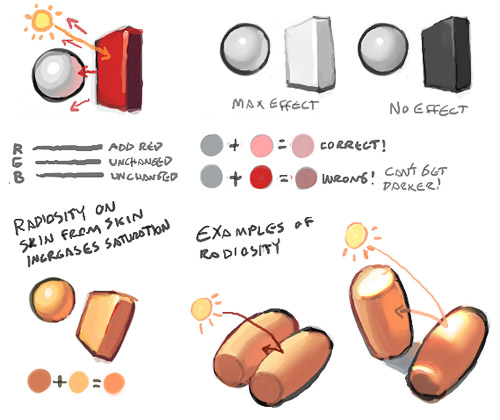 MAX EFFECT
NO EFFECT
R ADD RED
G UNCHANGED
B UNCHANGED
+ = CORRECT!
+ = WRONG! CAN'T GET
DARKER!
RADIOSITY ON
SKIN FROM SKIN
INCREASES SATURATION
EXAMPLES OF
RADIOSITY
+ =